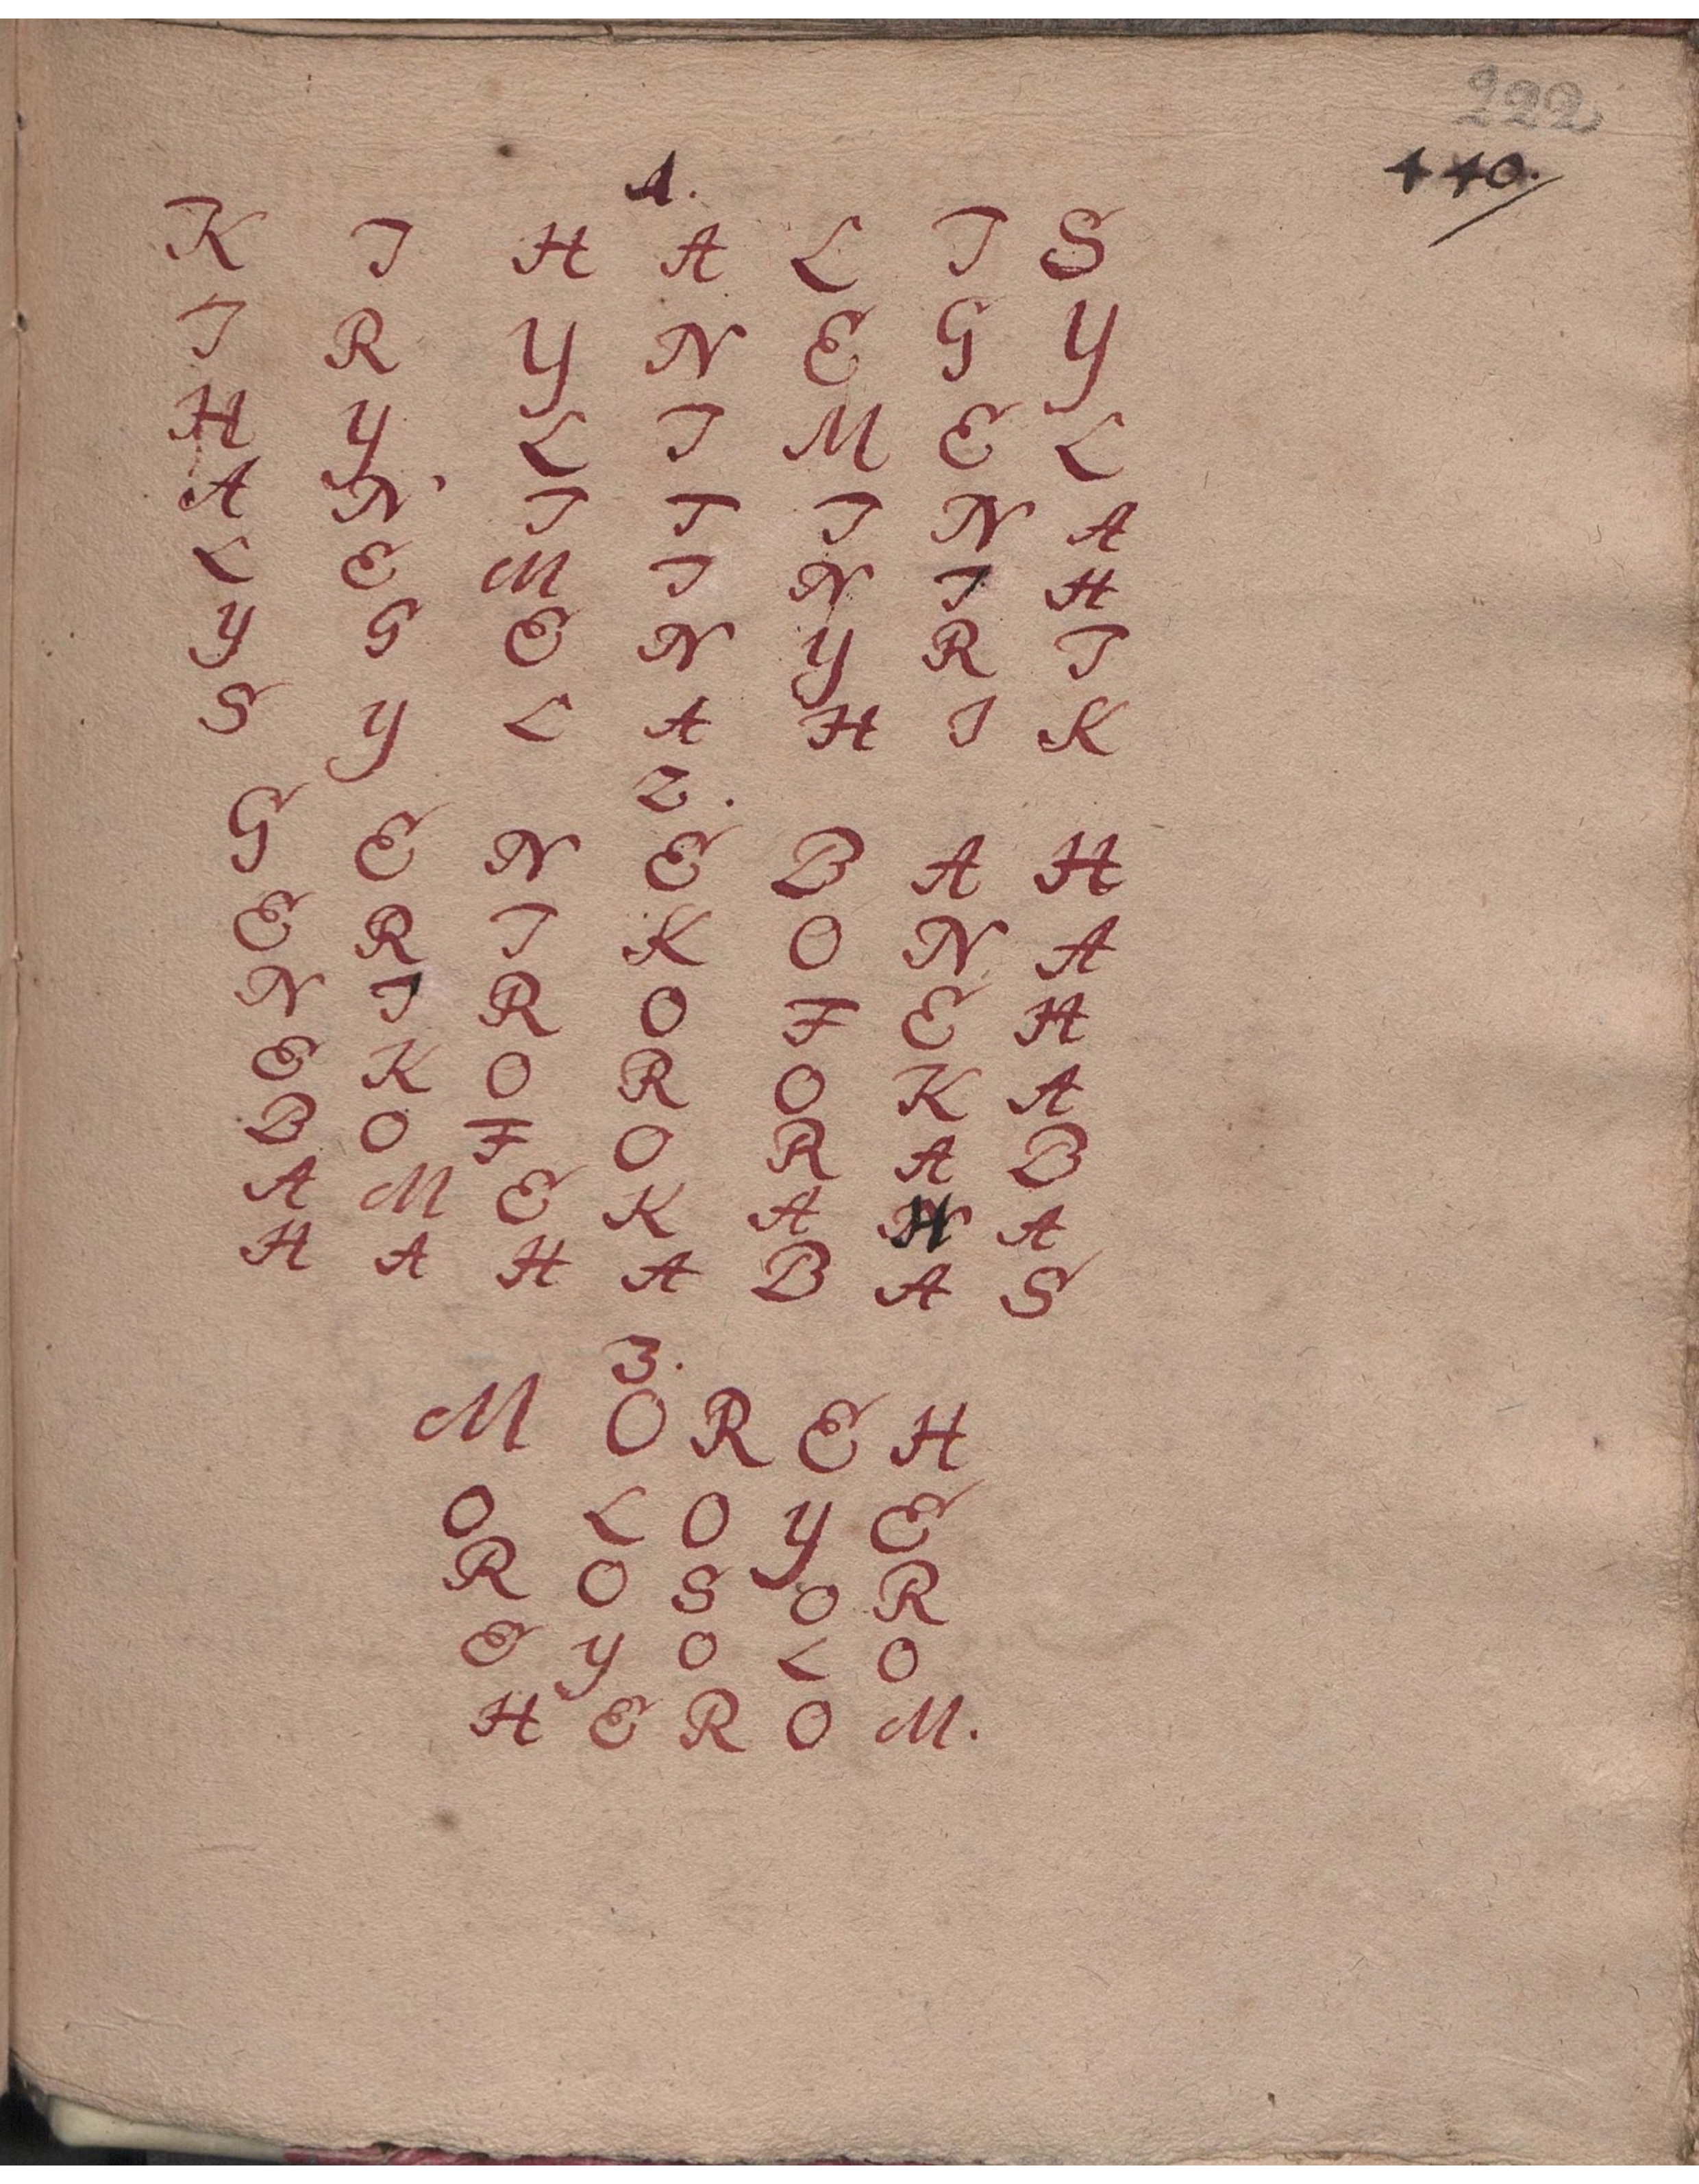 222
440.
1.
K I H A L I S
I R Y N E G Y
H Y L I M E L
A N I T I N A
L E M I N I H
Y G E N Y R I
S Y L A H I K
2.
G E N E B A H
E R I K O N A
N I R O F E H
E K O R O K A
B O F O R A B
A M E K A H A
H A H A B A S
3.
M O R E H
O L O Y E
R O S O R
E Y O L O
H E R O M.